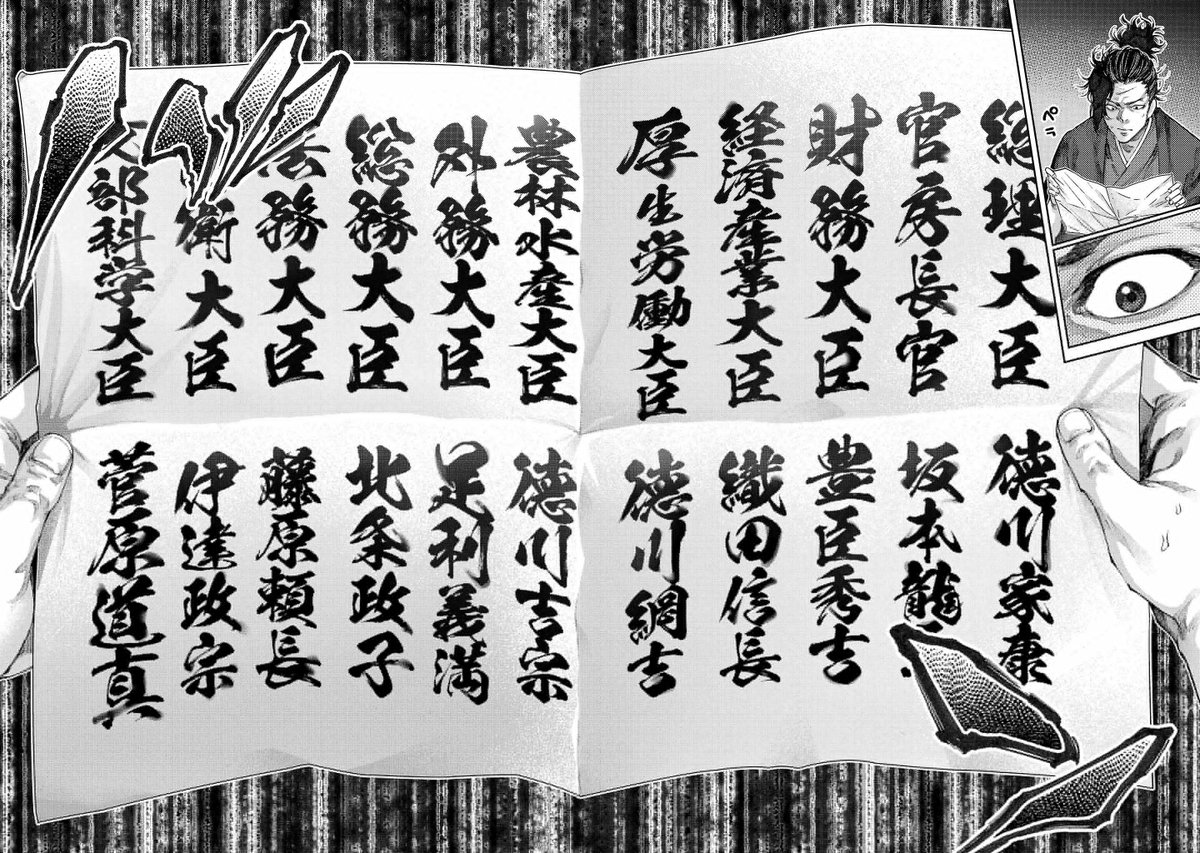 ぺこ
総理大臣 徳川家康
官房長官 坂本龍
財務大臣 豊臣秀吉
経済産業大臣 織田信長
厚生労働大臣 徳川綱吉
農林水産大臣 徳川吉宗
外務大臣 足利義満
総務大臣 北条政子
法務大臣 藤原頼長
衛大臣 伊達政宗
部科学大臣 菅原道真